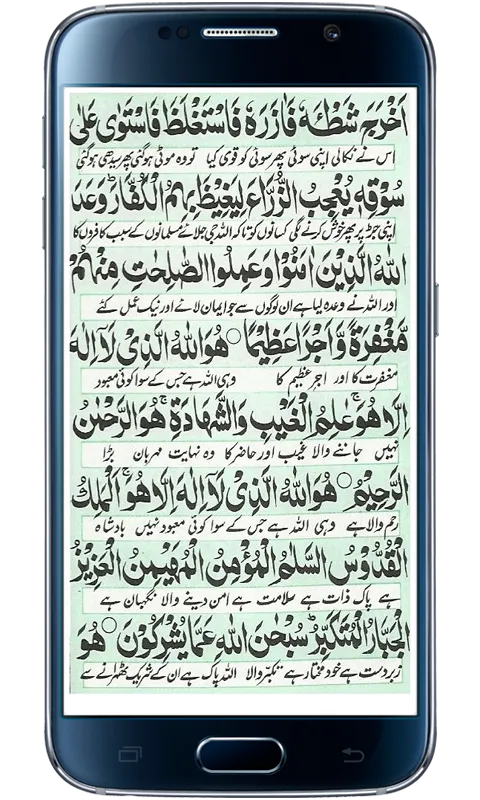 اَخْرَجَ شَطْـَٔهٗ فَاٰزَرَهٗ فَاسْتَغْلَظَ فَاسْتَوٰى عَلٰى
اس نے نکالی اپنی سوئی پھر سوئی کو قوی کیا تو وہ موٹی ہوگئی پھر سیدھی ہوگئی
سُوْقِهٖ يُعْجِبُ الزُّرَّاعَ لِيَغِيْظَ بِهِمُ الْكُفَّارَ وَعَدَ
اپنی جڑ پر پھر خوش کرنے لگی کسانوں کو تاکہ اللہ جی جلائے مسلمانوں کے سبب کافروں کا
اللهُ الَّذِيْنَ اٰمَنُوْا وَعَمِلُوا الصّٰلِحٰتِ مِنْهُمْ
اور اللہ نے وعدہ لیا ہے ان لوگوں سے جو ایمان لائے اور نیک عمل کئے
مَّغْفِرَةً وَّاَجْرًا عَظِيْمًا ○ هُوَ اللهُ الَّذِيْ لَآ اِلٰهَ
مغفرت کا اور اجر عظیم کا وہی اللہ ہے جس کے سوا کوئی معبود
اِلَّا هُوَ عٰلِمُ الْغَيْبِ وَالشَّهَادَةِ هُوَ الرَّحْمٰنُ
نہیں جاننے والا غیب اور حاضر کا وہ نہایت مہربان بڑا
الرَّحِيْمُ ○ هُوَ اللهُ الَّذِيْ لَآ اِلٰهَ اِلَّا هُوَ اَلْمَلِكُ
رحم والا ہے وہی اللہ ہے جس کے سوا کوئی معبود نہیں بادشاہ
الْقُدُّوْسُ السَّلٰمُ الْمُؤْمِنُ الْمُهَيْمِنُ الْعَزِيْزُ
ہے پاک ذات ہے سلامت ہے امن دینے والا نگہبان ہے
الْجَبَّارُ الْمُتَكَبِّرُ سُبْحٰنَ اللهِ عَمَّا يُشْرِكُوْنَ ○ هُوَ
زبردست ہے خود مختار ہے تکبّر والا اللہ پاک ہے ان کے شریک ٹھہرانے سے